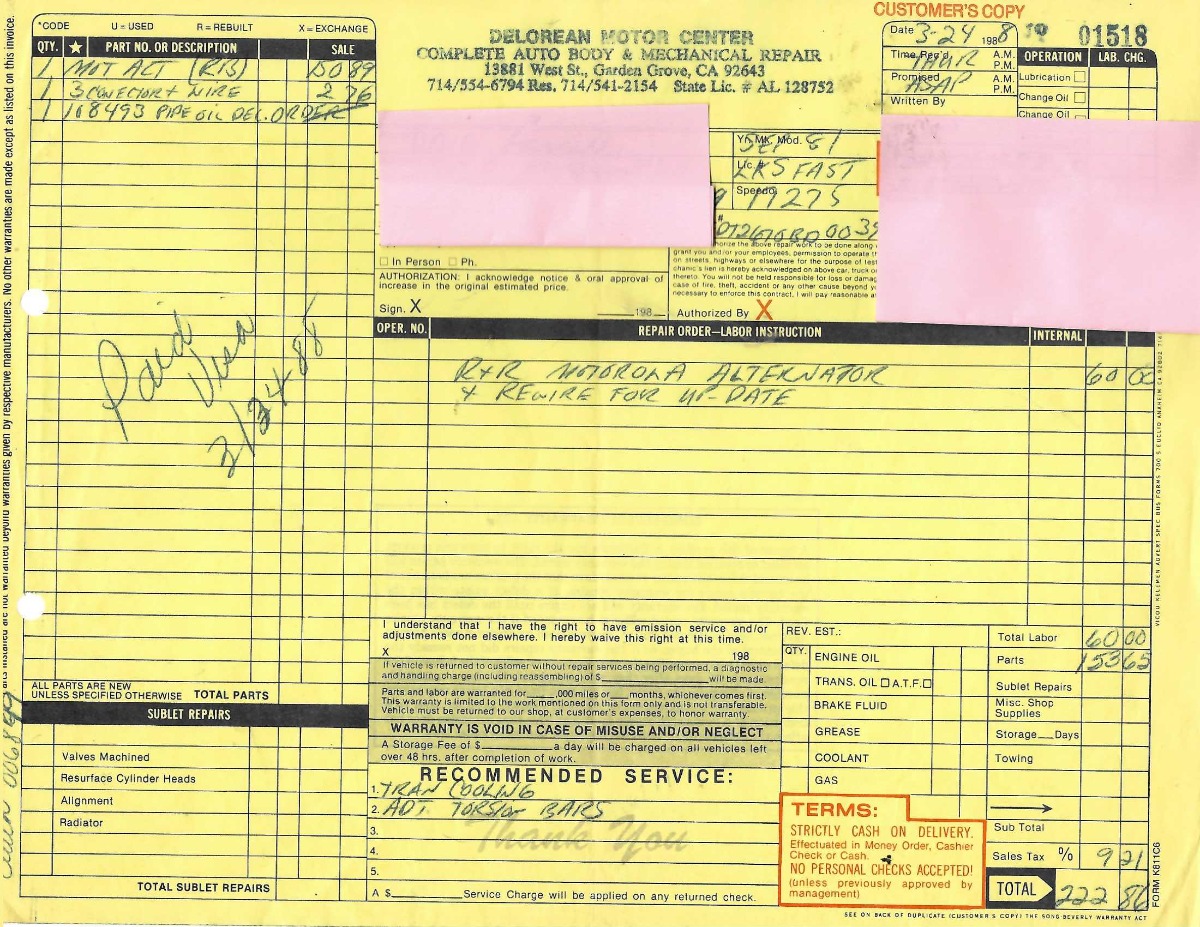 CUSTOMER'S COPY
*CODE U = USED R = REBUILT X = EXCHANGE
QTY. ★ PART NO. OR DESCRIPTION SALE
1 MOT ACT (RB) 150 89
1 3 CONECTORT WIRE 2 76
1 108493 PIPE OIL DEL. ORDER
DELOREAN MOTOR CENTER
COMPLETE AUTO BODY & MECHANICAL REPAIR
13881 West St., Garden Grove, CA 92643
714/554-6794 Res. 714/541-2154 State Lic. # AL 128752
Date 3-24 1988
01518
Time Rec'd A.M.
P.M.
Promised ASAP A.M.
P.M.
Written By
OPERATION LAB. CHG.
Lubrication
Change Oil
Change Oil
Yr. Mk. Mod. SEP 81
Lic. # LKS FAST
Speedo. 77275
In Person Ph.
AUTHORIZATION: I acknowledge notice & oral approval of
increase in the original estimated price.
Sign. X 198
orize the above repair work to be done along
grant you and/or your employees, permission to operate
on streets, highways or elsewhere for the purpose of
chanic's lien is hereby acknowledged on above car, truck or
thereto. You will not be held responsible for loss or
case of fire, theft, accident or any other cause beyond
necessary to enforce this contract, I will pay reasonable
Authorized By X
OPER. NO. REPAIR ORDER—LABOR INSTRUCTION INTERNAL
R+R MOTOROLA ALTERNATOR 60 00
+ REWIRE FOR UP-DATE
Paid
Visa
3/24-88
I understand that I have the right to have emission service and/or
adjustments done elsewhere. I hereby waive this right at this time.
X 198
If vehicle is returned to customer without repair services being performed, a diagnostic
and handling charge (including reassembling) of $ will be made.
Parts and labor are warranted for ,000 miles or months, whichever comes first.
This warranty is limited to the work mentioned on this form only and is not transferable.
Vehicle must be returned to our shop, at customer's expenses, to honor warranty.
WARRANTY IS VOID IN CASE OF MISUSE AND/OR NEGLECT
A Storage Fee of $ a day will be charged on all vehicles left
over 48 hrs. after completion of work.
RECOMMENDED SERVICE:
1. TRAN COOLING
2. ADT. TORSION BARS
3.
4.
5.
Thank You
A $ Service Charge will be applied on any returned check.
ALL PARTS ARE NEW
UNLESS SPECIFIED OTHERWISE TOTAL PARTS
SUBLET REPAIRS
Valves Machined
Resurface Cylinder Heads
Alignment
Radiator
TOTAL SUBLET REPAIRS
REV. EST.:
QTY.
ENGINE OIL
TRANS. OIL A.T.F.
BRAKE FLUID
GREASE
COOLANT
GAS
TERMS:
STRICTLY CASH ON DELIVERY.
Effectuated in Money Order, Cashier
Check or Cash.
NO PERSONAL CHECKS ACCEPTED!
(unless previously approved by
management)
Total Labor 60 00
Parts 153 65
Sublet Repairs
Misc. Shop
Supplies
Storage Days
Towing
Sub Total
Sales Tax % 9 21
TOTAL 222 86
SEE ON BACK OF DUPLICATE (CUSTOMER'S COPY) THE SONG BEVERLY WARRANTY ACT
FORM K811C6